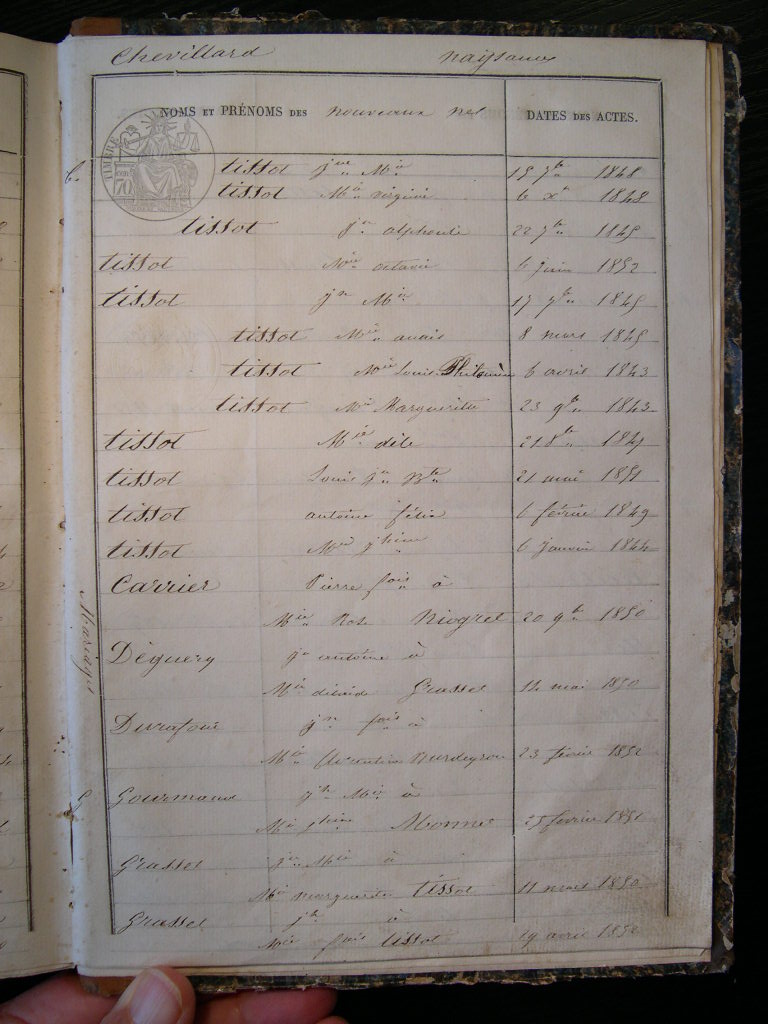 Chevillard naissances
NOMS ET PRÉNOMS DES nouveaux nés DATES DES ACTES.
TIMBRE
70
tissot Jne Mie 1848
tissot Mie virginie 6 Xre 1848
tissot Jn alphonse 22 7bre 1845
tissot Mie octavie 6 juin 1852
tissot Jn Mie 17 7bre 1845
tissot Mie anais 8 mars 1845
tissot Mie Louise Philomène 6 avril 1843
tissot Mie Marguerite 23 9bre 1843
tissot Mie 21 8bre 1841
tissot Louis Jn Bte 21 mai 1851
tissot antoine félix 6 février 1849
tissot Mie 6 janvier 1844
Mariage
Carrier Pierre fois à
Mie Rose Niogret 20 9bre 1850
Déguery Jn antoine à
Mie Grasset 14 mai 1850
Durafour Jn fois à
Mie 23 février 1852
Gourmand Jn Mie à
Mie Monnet 25 février 1851
Grasset Jn Mie à
Mie marguerite tissot 11 mars 1850
Grasset Jh à
Mie fois tissot 19 avril 1852